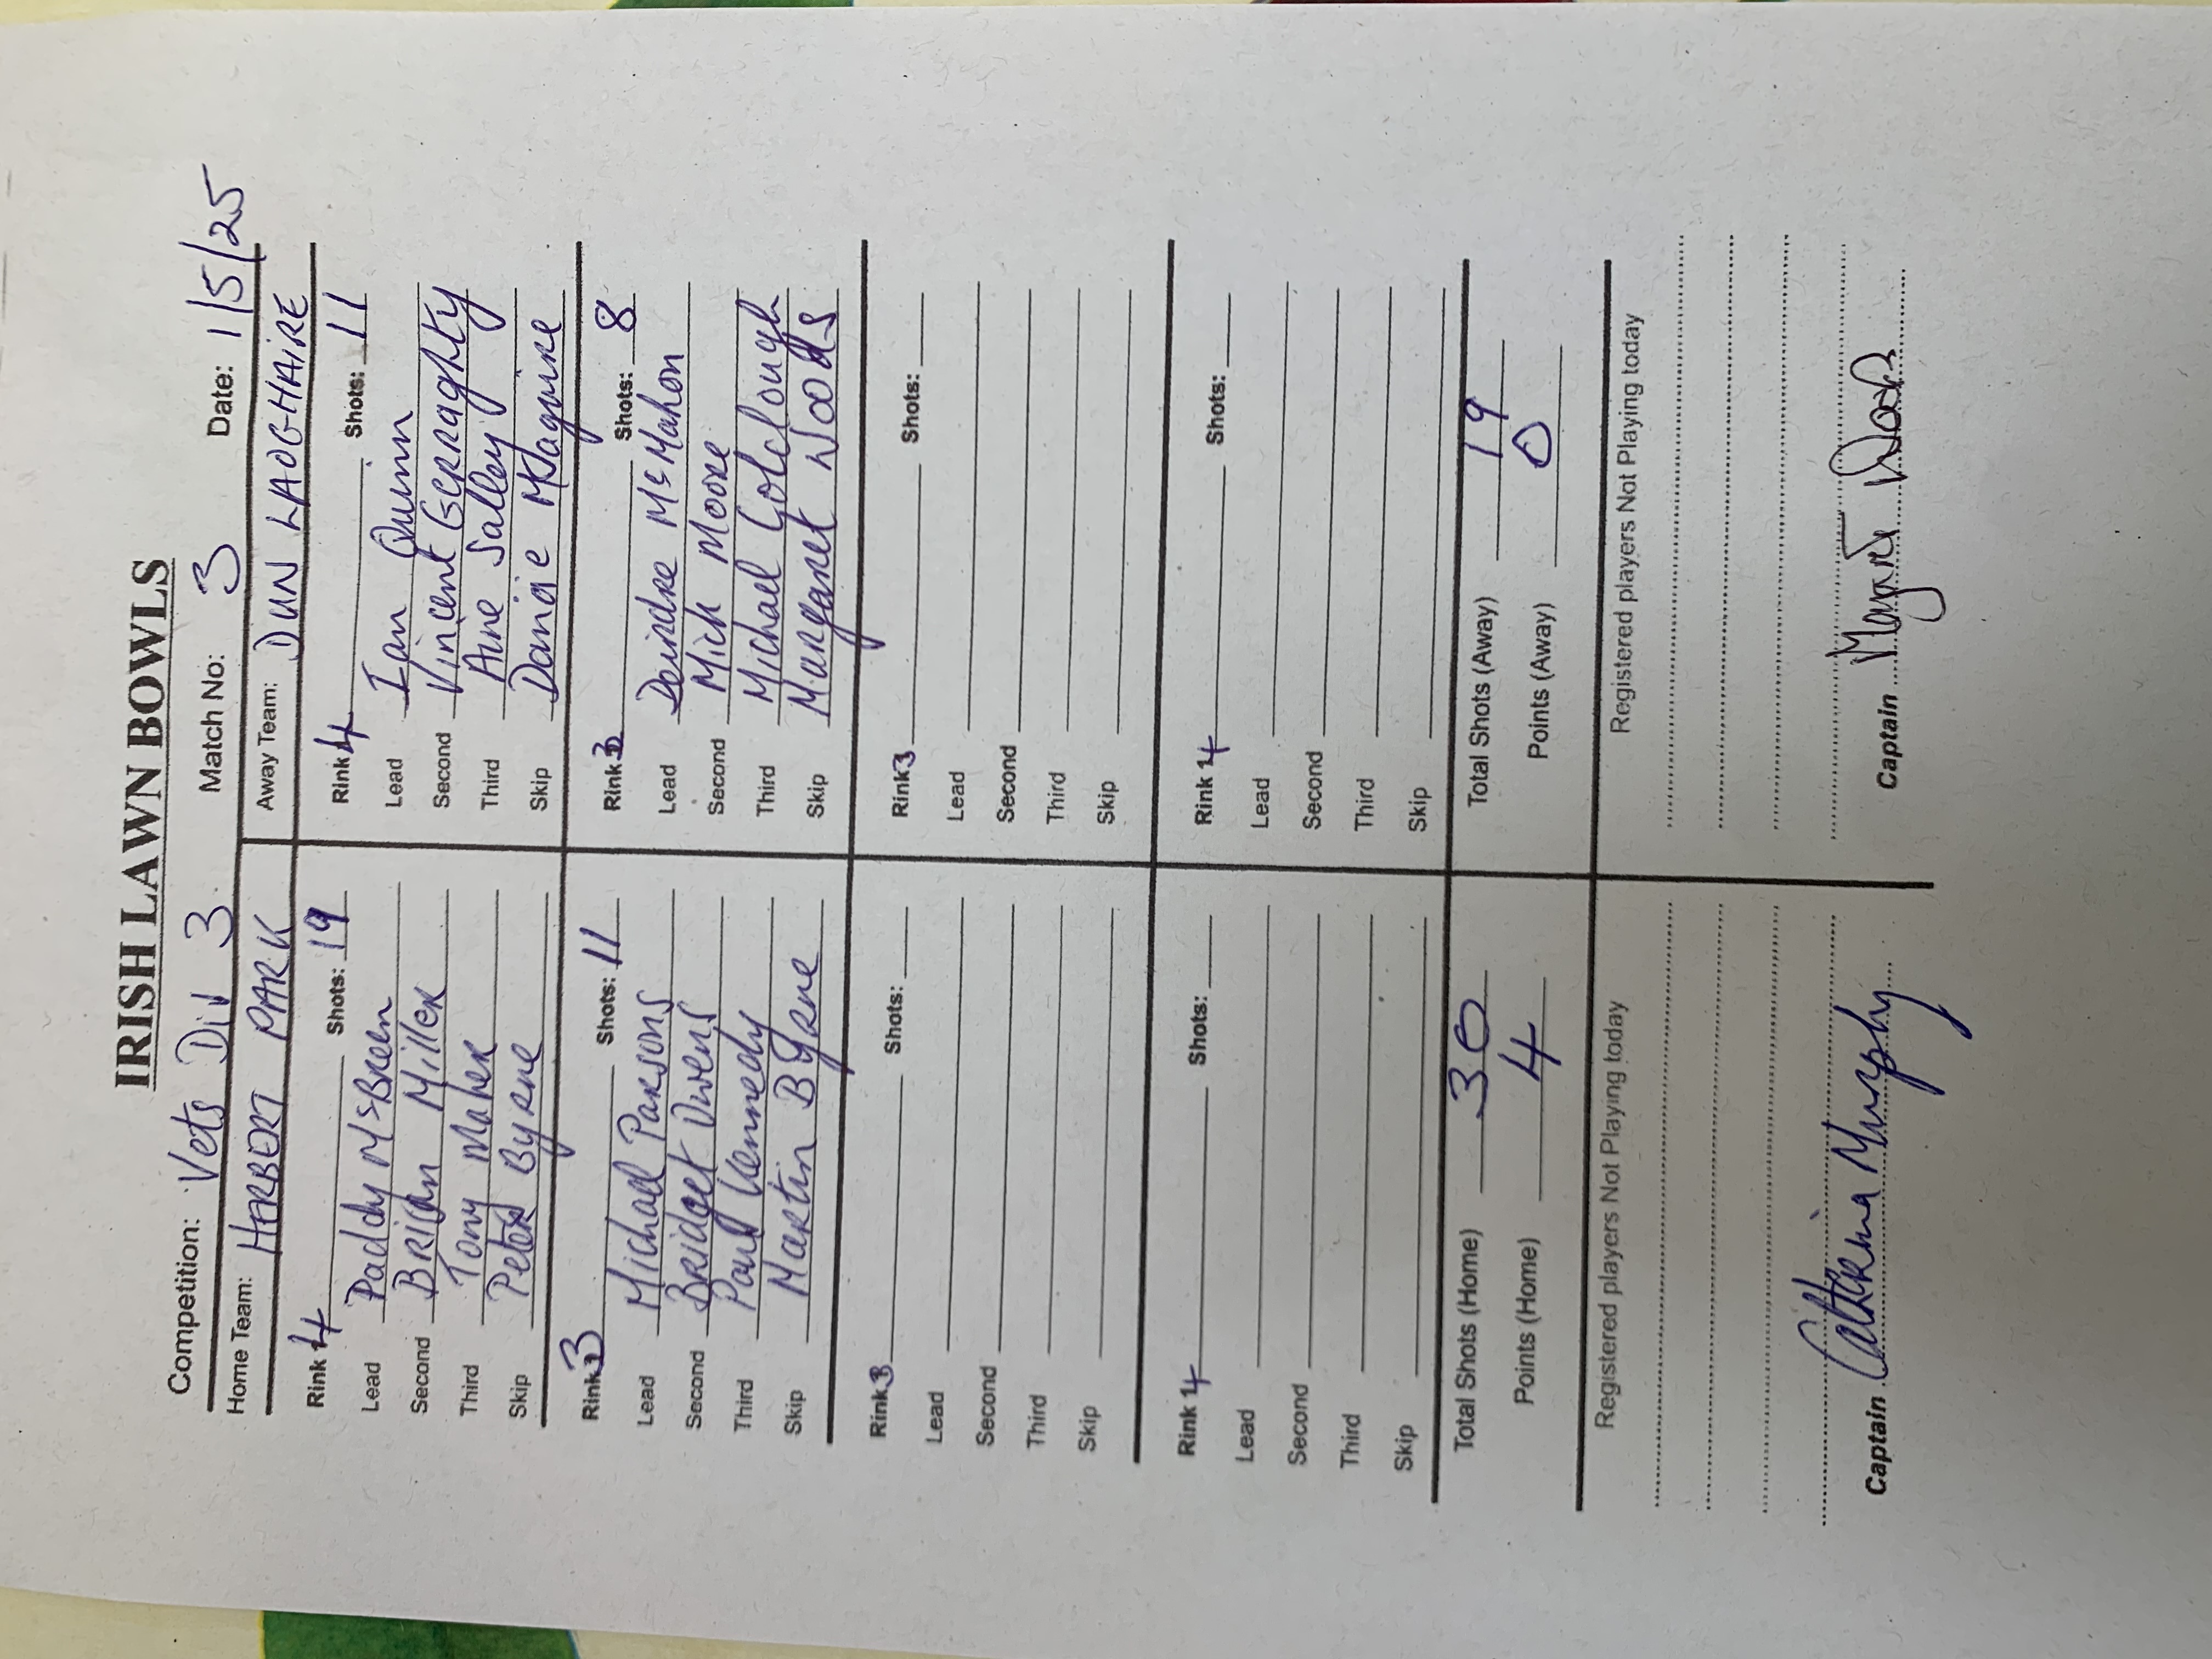 IRISH LAWN BOWLS
Competition: Vets Div 3 Match No: 3 Date: 1/5/25
Home Team: HERBERT PARK Away Team: DUN LAOGHAIRE
Rink 4 Shots: 19 Rink 4 Shots: 11
Lead Paddy McBreen Lead Ian Quinn
Second Brian Miller Second Vincent Gerraghty
Third Tony Maher Third Aine Salley
Skip Peter Byrne Skip Danoie Maguire
Rink 3 Shots: 11 Rink 3 Shots: 8
Lead Michael Parsons Lead Deirdre McMahon
Second Bridget Owens Second Mick Moore
Third Paul Kennedy Third Michael Colclough
Skip Martin Byrne Skip Margaret Woods
Rink 3 Shots: Rink 3 Shots:
Lead Lead
Second Second
Third Third
Skip Skip
Rink 4 Shots: Rink 4 Shots:
Lead Lead
Second Second
Third Third
Skip Skip
Total Shots (Home) 30 Total Shots (Away) 19
Points (Home) 4 Points (Away) 0
Registered players Not Playing today Registered players Not Playing today
Captain Catherina Murphy Captain Margaret Woods